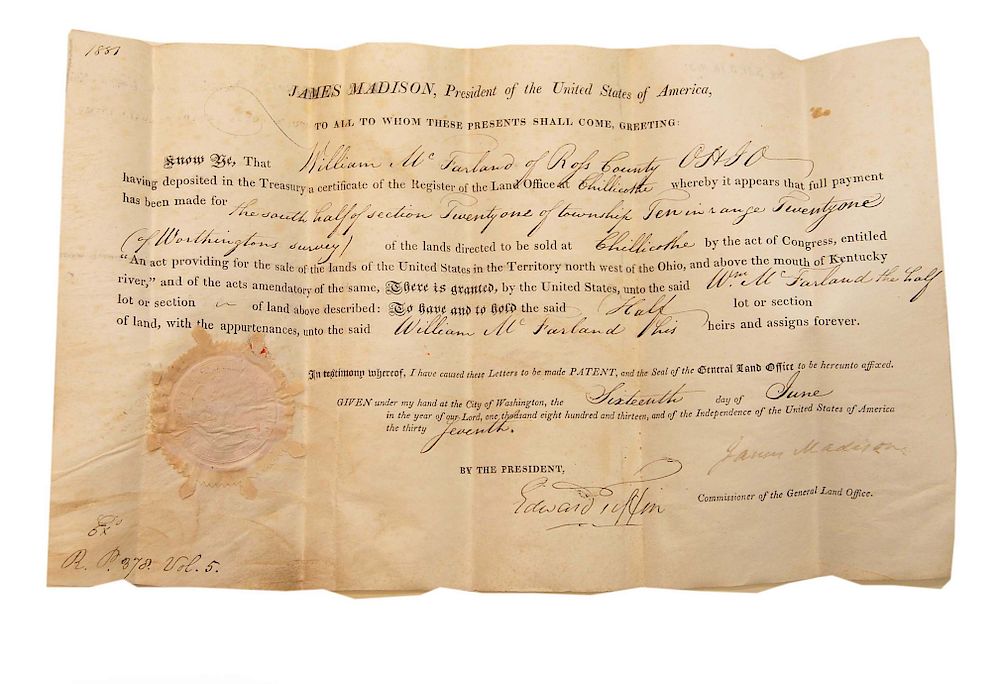 1881
JAMES MADISON, President of the United States of America,
TO ALL TO WHOM THESE PRESENTS SHALL COME, GREETING:
Know Ye, That William Mc Farland of Ross County OHIO
having deposited in the Treasury a certificate of the Register of the Land Office at Chillicothe whereby it appears that full payment
has been made for the south half of section Twenty one of township Ten in range Twenty one
(of Worthingtons survey) of the lands directed to be sold at Chillicothe by the act of Congress, entitled
“An act providing for the sale of the lands of the United States in the Territory north west of the Ohio, and above the mouth of Kentucky
river,” and of the acts amendatory of the same, There is granted, by the United States, unto the said Wm. Mc Farland the half
lot or section of land above described: To have and to hold the said Half lot or section
of land, with the appurtenances, unto the said William Mc Farland his heirs and assigns forever.
In testimony whereof, I have caused these Letters to be made PATENT, and the Seal of the General Land Office to be hereunto affixed.
GIVEN under my hand at the City of Washington, the Sixteenth day of June
in the year of our Lord, one thousand eight hundred and thirteen, and of the Independence of the United States of America
the thirty seventh.
James Madison
BY THE PRESIDENT,
Edward Tiffin Commissioner of the General Land Office.
Exd
R. P. 378. Vol. 5.